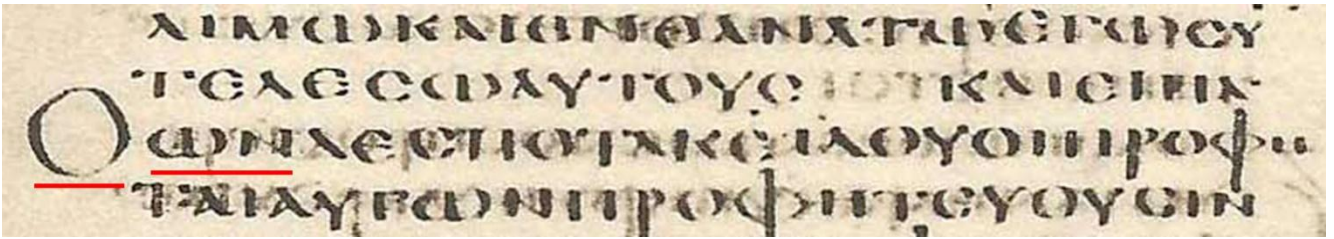 ΛΙΜΩΚΑΙΕΝΘΑΝΑΤΩΕΓΩϹΥ
ΤΕΛΕϹΩΑΥΤΟΥϹ ΚΑΙΕΙΠΑ
Ο ΩΝΔΕϹΠΟΤΑΚΕΙΔΟΥΟΙΠΡΟΦΗ
ΤΑΙΑΥΤΩΝΠΡΟΦΗΤΕΥΟΥϹΙΝ